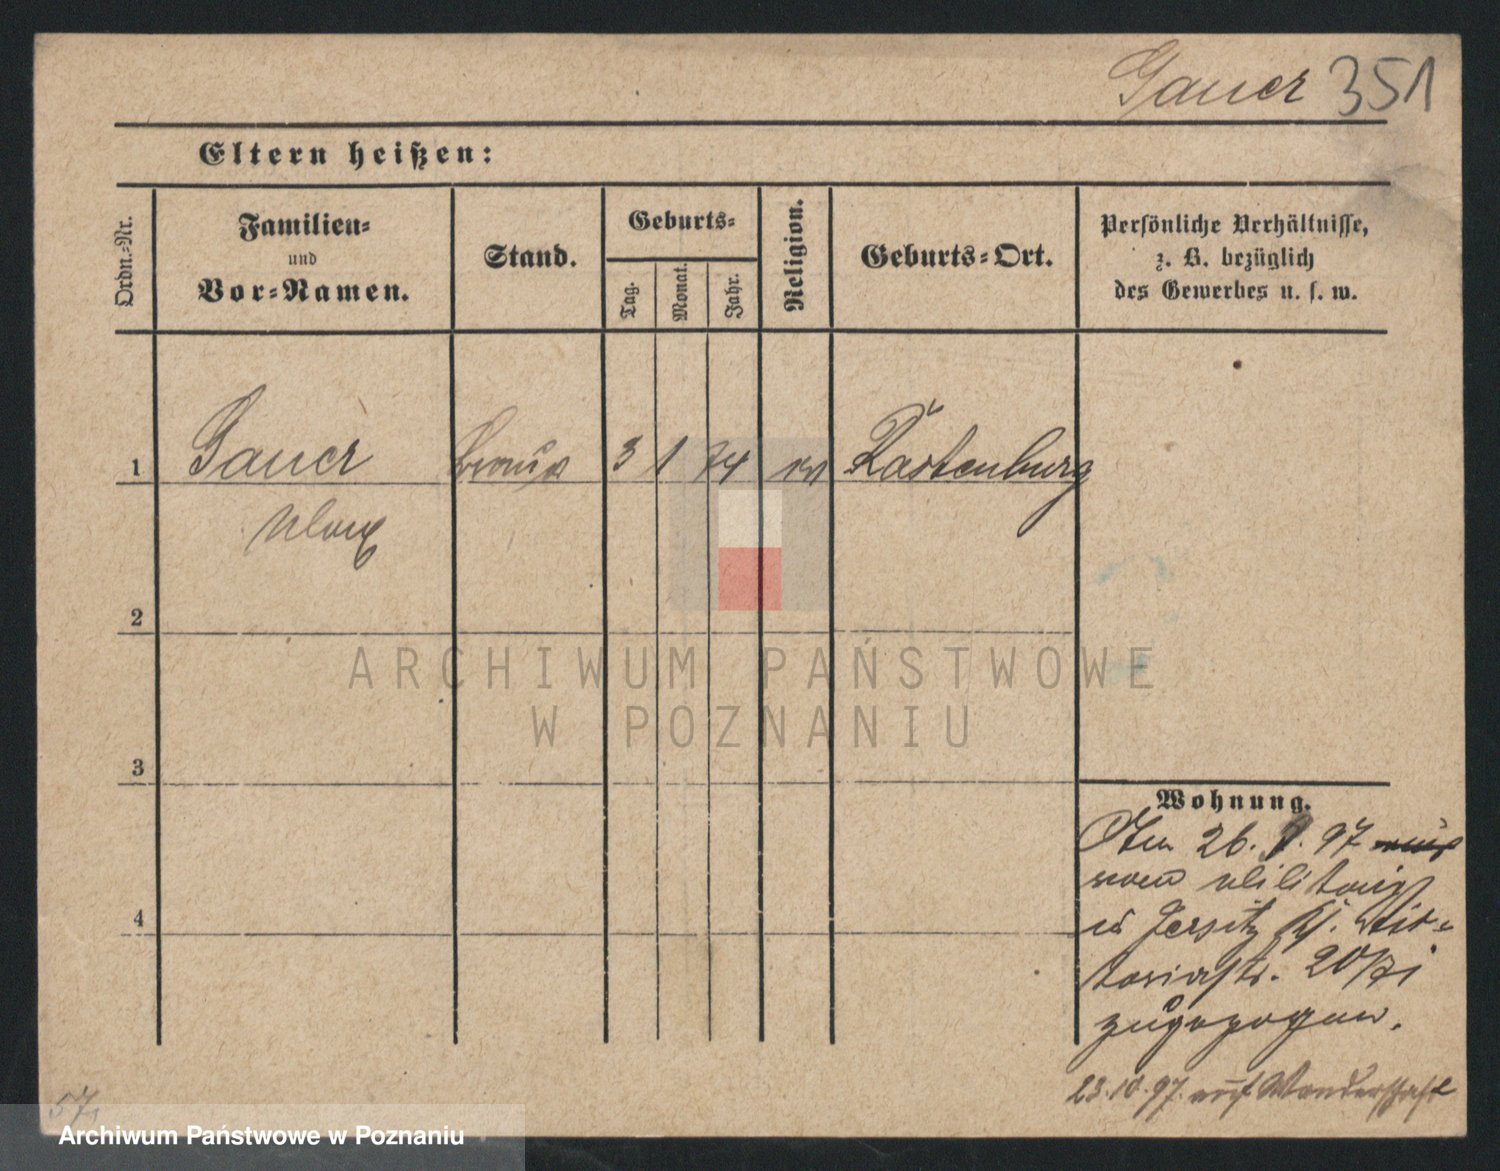 Gauer 351
Eltern heißen:
Ordn.-Nr.
Familien-
und
Vor-Namen.
Stand.
Geburts-
Tag.
Monat.
Jahr.
Religion.
Geburts-Ort.
Persönliche Verhältnisse,
z. B. bezüglich
des Gewerbes u. s. w.
1 Gauer 3 1 74 ev Rastenburg
Max
2
3
4
Wohnung.
Am 26. 97
vom Militair
in Jersitz Vic-
toriastr. 20
zugezogen.
23.10.97. auf Wanderschaft
57
ARCHIWUM PAŃSTWOWE
W POZNANIU
Archiwum Państwowe w Poznaniu